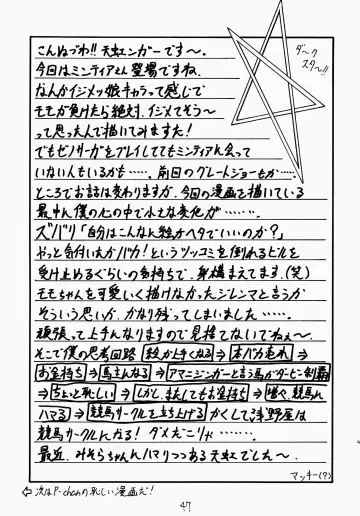 こんぬづわ!!天虹ンガーです〜。
今回はミンティアさん登場ですね.
なんかイジメッ娘キャラって感じで
モモが負けたら絶対.イジメてそう〜
って思ったんで描いてみますた!
でもゼノサーガをプレイしててもミンティアに会って
いない人もいるかも……. 前回のグレートジョーもか…….
ところでお話は変わりますが.今回の漫画を描いている
最中に僕の心の中で小さな変化が…….
ズバリ「自分はこんなに絵がヘタでいいのか?」
やっと気付いたかバカ!というツッコミを倒れるビルを
受け止めるぐらいの気持ちで.身構えてます.(笑)
モモちゃんを可愛いく描けなかったジレンマと言うか
そういう思いが.かなり残ってしまいました…….
頑張って上手んなりますので見捨てないでねぇ〜.
そこで僕の思考回路 絵が上手くなる⇒本バカ売れ⇒
お金持ち⇒馬主んなる⇒アマニジンガーと言う馬がダービー制覇
⇒ちょっと恥しい⇒しかし.またしてもお金持ち⇒増々.競馬に
ハマる⇒競馬サークルを立ち上げる かくして浅野屋は
競馬サークルになる! ダメだこりゃ…….
最近.みそらちゃんにハマりつつある天虹でした〜.
マッキー(?)
ダ〜ク
スタ〜!!
⇦次はP-chanの恥しい漫画だ!
47